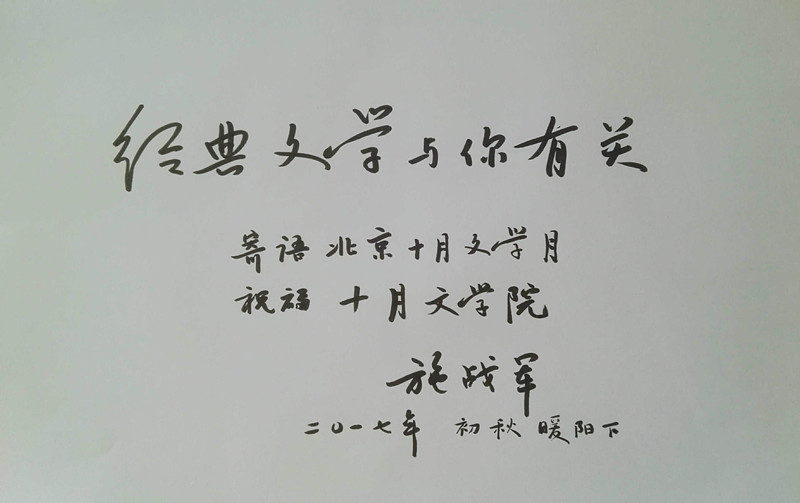 经典文学与你有关
寄语 北京十月文学月
祝福 十月文学院
施战军
二〇一七年 初秋 暖阳下